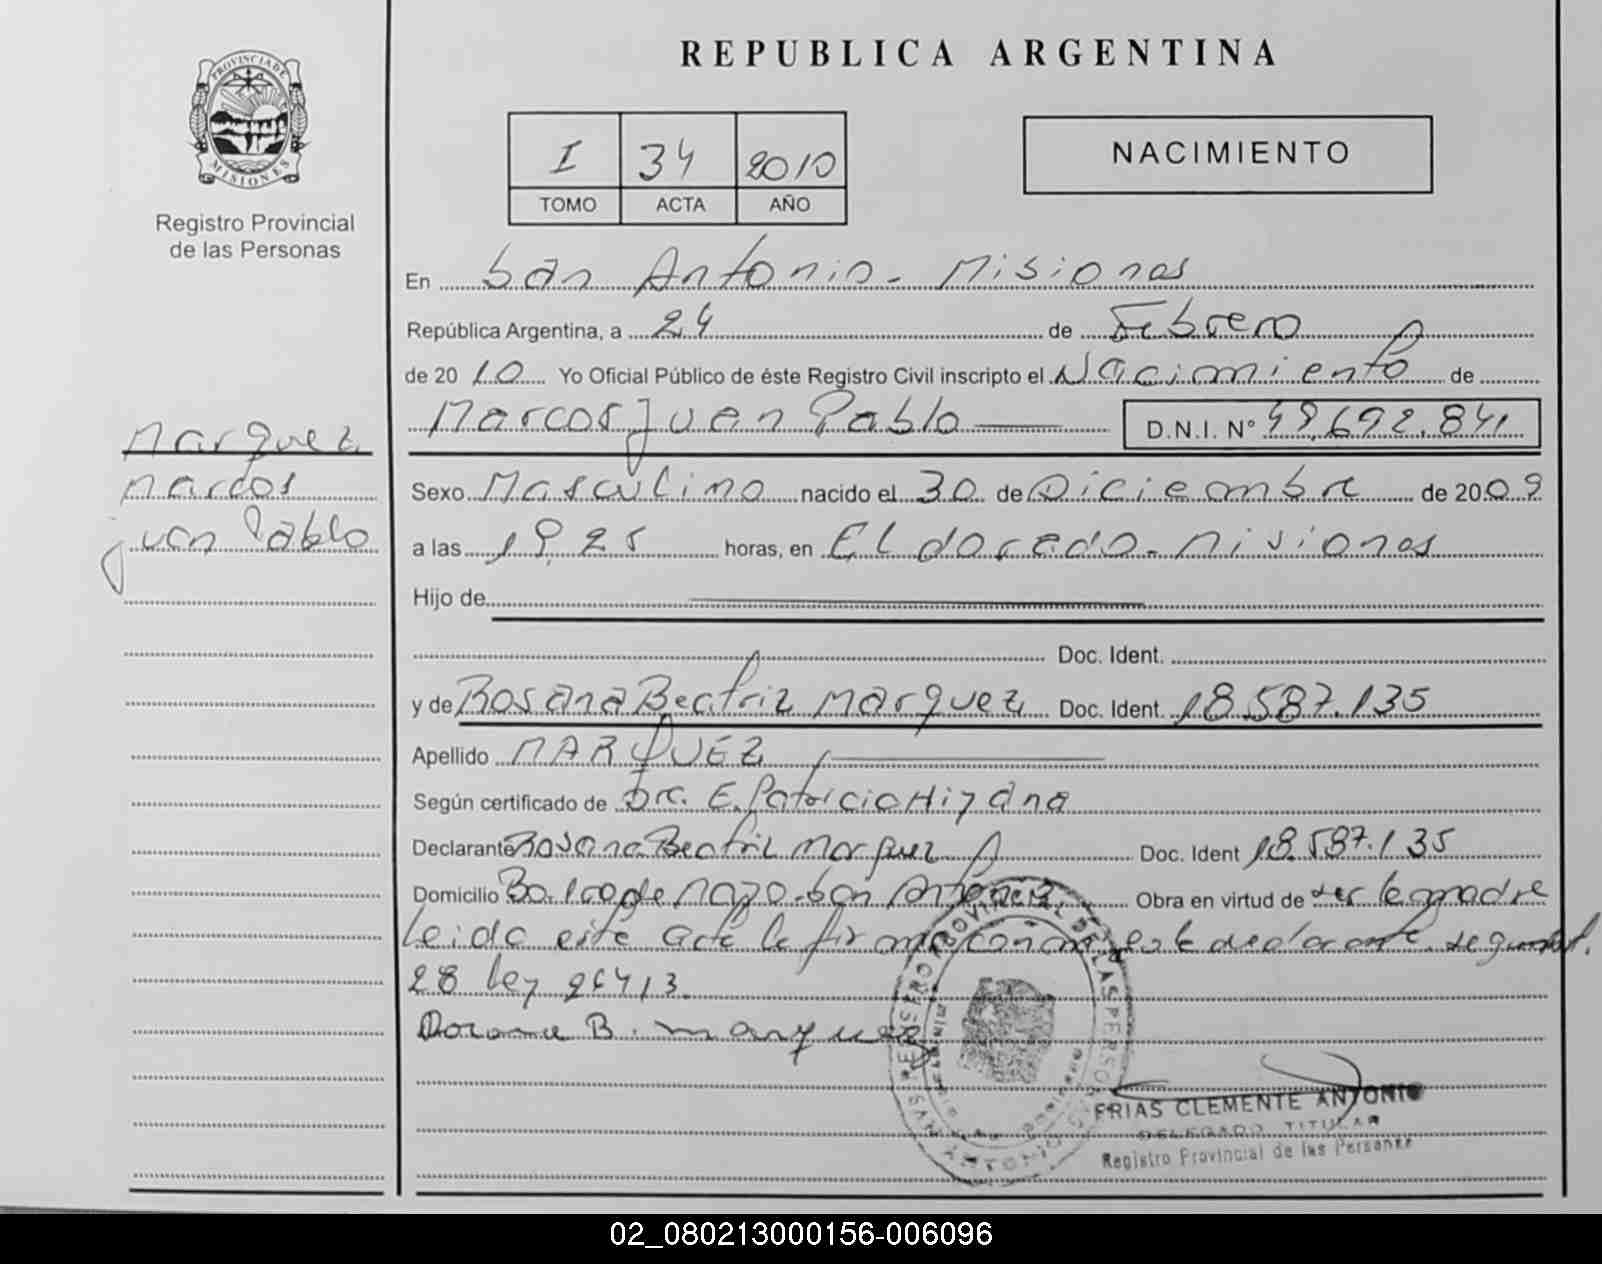 PROVINCIA DE
MISIONES
Registro Provincial
de las Personas
Marquez
Marcos
juan Pablo
REPUBLICA ARGENTINA
I 34 2010
TOMO ACTA AÑO
NACIMIENTO
En San Antonio - Misiones
República Argentina, a 24 de Febrero
de 2010 Yo Oficial Público de éste Registro Civil inscripto el Nacimiento de
Marcos Juan Pablo D.N.I. N° 49.692.841
Sexo Masculino nacido el 30 de Diciembre de 2009
a las 19,25 horas, en Eldorado - Misiones
Hijo de
Doc. Ident.
y de Rosana Beatriz Marquez Doc. Ident. 18.587.135
Apellido MARQUEZ
Según certificado de Dr. E. Patricio
Declarante Rosana Beatriz Marquez Doc. Ident 18.587.135
Domicilio San Antonio Obra en virtud de ser la madre
Leida este acta la firma conmigo la declarante segun art.
28 Ley 26413.
B. Marquez
REGISTRO PROVINCIAL DE LAS PERSONAS
SAN ANTONIO
FRIAS CLEMENTE ANTONIO
DELEGADO TITULAR
Registro Provincial de las Personas
02_080213000156-006096